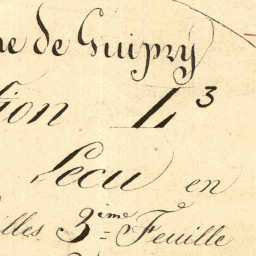 ne de Guipry
tion L3
Lecu en
illes 3=ème Feuille